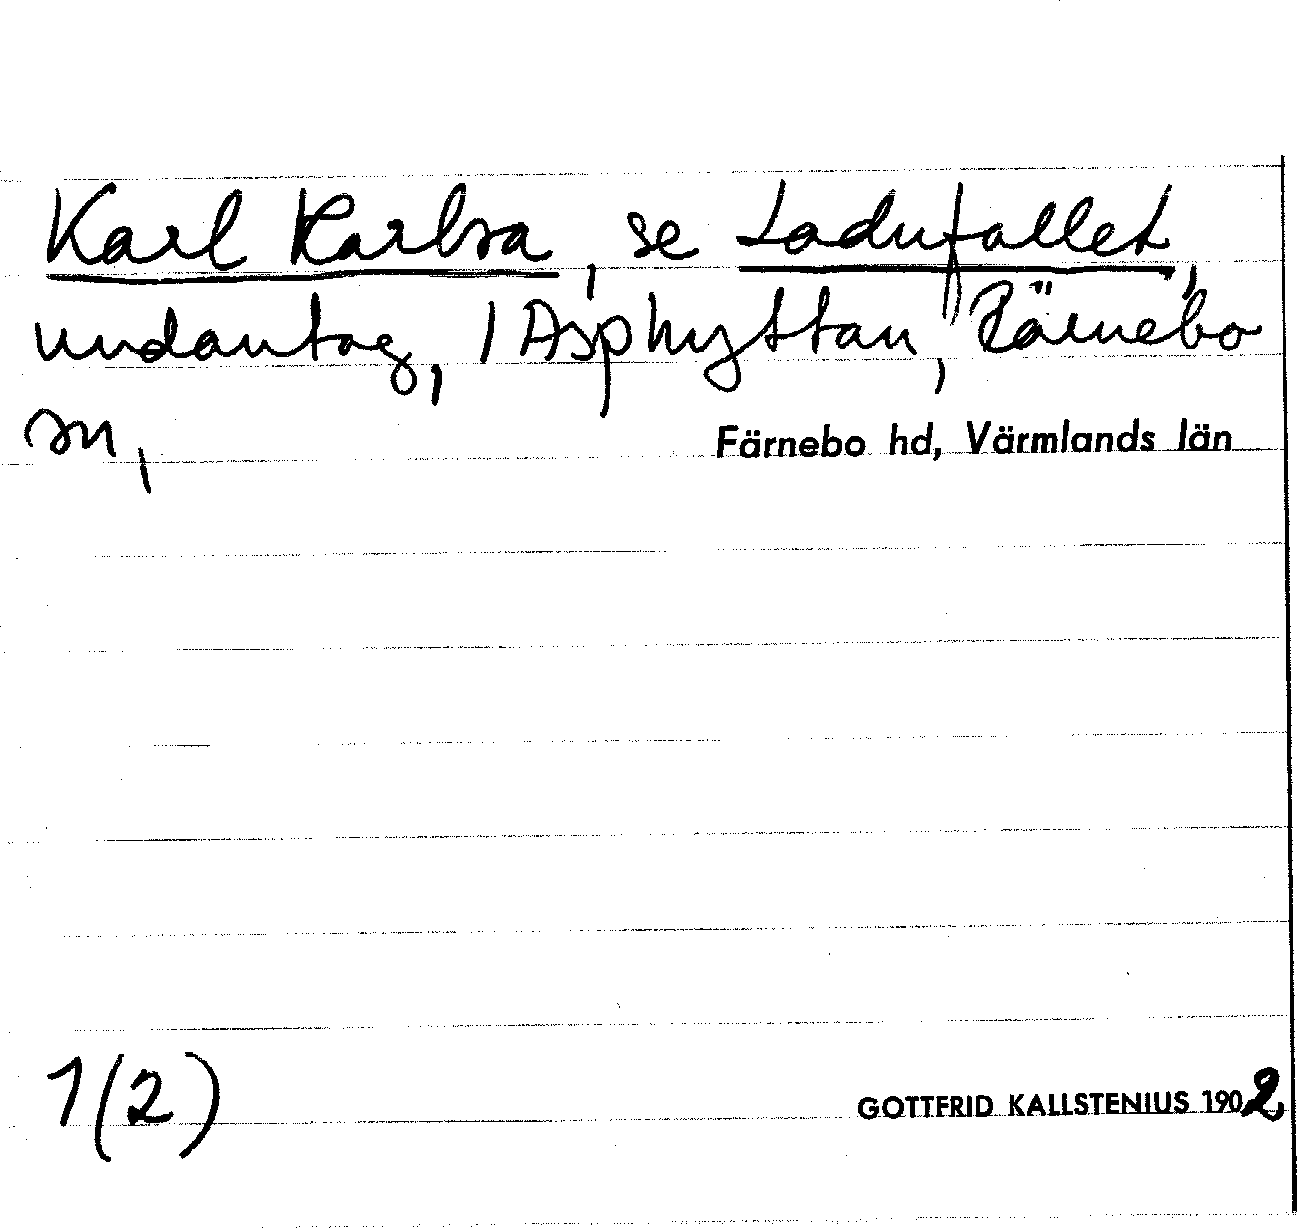 Karl Karlsa, se Ladufallet,
undantag, 1 Asphyttan, Färnebo
sn,
Färnebo hd, Värmlands län
1(2)
GOTTFRID KALLSTENIUS 1902